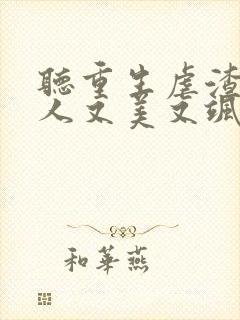 聽重生虐渣
人又美又颯
和華燕